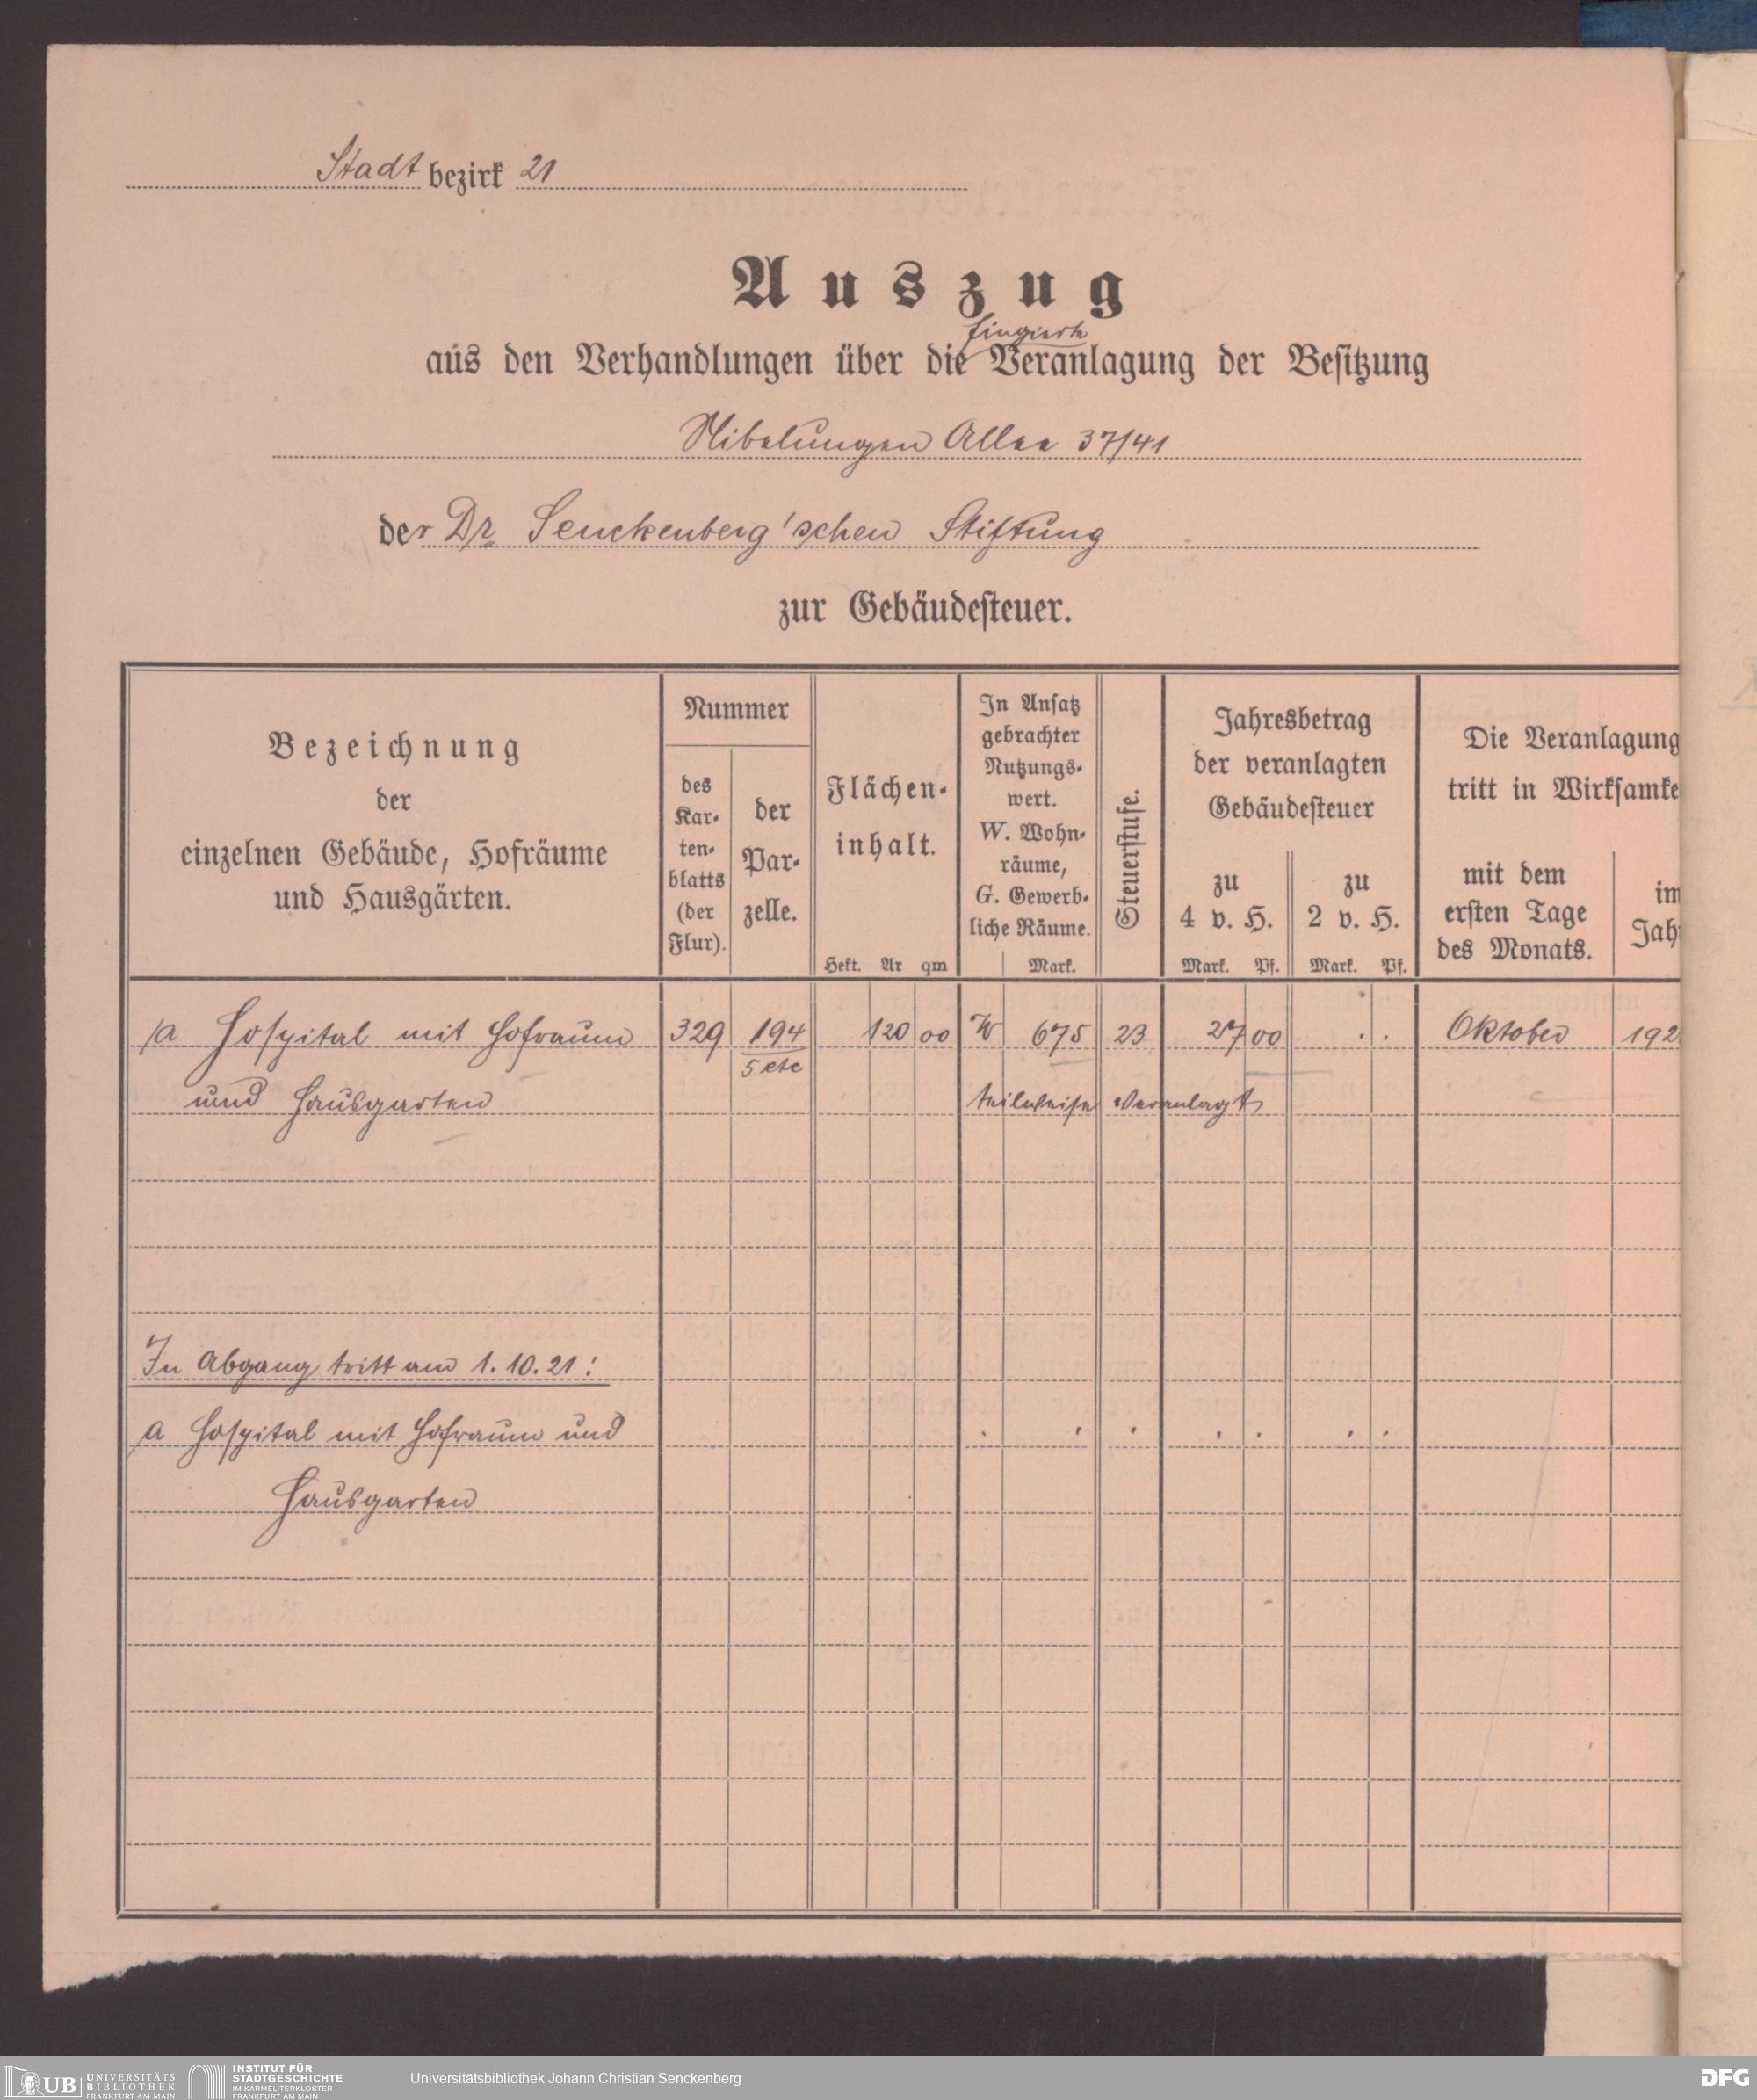 Stadt bezirk 21
Auszug
fingierte
aus den Verhandlungen über die Veranlagung der Besitzung
Nibelungen Allee 37/41
der Dr. Senckenberg'schen Stiftung
zur Gebäudesteuer.
Bezeichnung
der
einzelnen Gebäude, Hofräume
und Hausgärten.
Nummer
des
Kar-
ten-
blatts
(der
Flur).
der
Par-
zelle.
Flächen-
inhalt.
Hekt. Ar qm
In Ansatz
gebrachter
Nutzungs-
wert.
W. Wohn-
räume,
G. Gewerb-
liche Räume.
Mark.
Steuerstufe.
Jahresbetrag
der veranlagten
Gebäudesteuer
zu
4 v. H.
Mark. Pf.
zu
2 v. H.
Mark. Pf.
Die Veranlagung
tritt in Wirksamke
mit dem
ersten Tage
des Monats.
im
Jah
a Hospital mit Hofraum 329 194 120 00 W 675 23 27 00 . . Oktober 192
5 etc
und Hausgarten teilweise veranlagt
In Abgang tritt am 1. 10. 21:
a Hospital mit Hofraum und . . . . . . .
Hausgarten
UB UNIVERSITÄTS
BIBLIOTHEK
FRANKFURT AM MAIN
INSTITUT FÜR
STADTGESCHICHTE
IM KARMELITERKLOSTER
FRANKFURT AM MAIN
Universitätsbibliothek Johann Christian Senckenberg
DFG